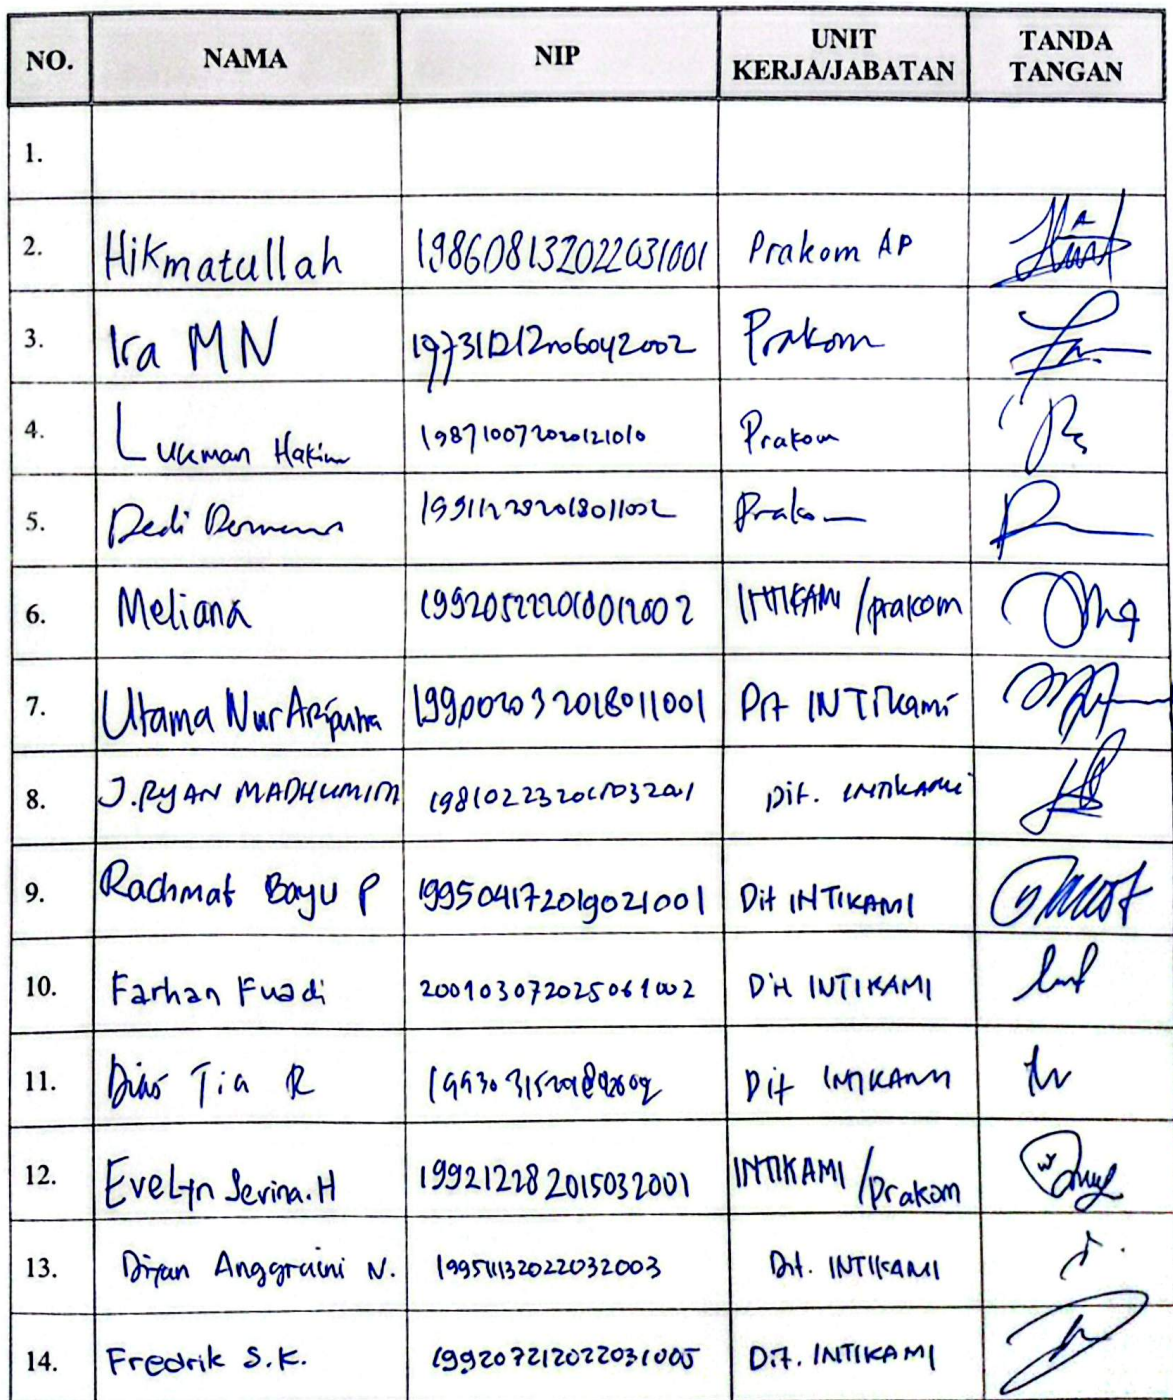 NO. NAMA NIP UNIT KERJA/JABATAN TANDA TANGAN
1.
2. Hikmatullah 198608132022031001 Prakom AP
3. Ira MN 197311212006042002 Prakom
4. Lukman Hakim 198710072020121010 Prakom
5. Dedi Prakom
6. Meliana INTIKAMI/prakom
7. Utama Nur Ariputra 199002032018011001 Dit INTIKami
8. J. RYAN Dit. INTIKAMI
9. Rachmat Bayu P 199504172019021001 Dit INTIKAMI
10. Farhan Fuadi 200103072025061002 Dit INTIKAMI
11. Tia R Dit INTIKAMI
12. Evelyn Serina.H 199212282015032001 INTIKAMI/Prakom
13. Anggraini N. 199511132022032003 Dit. INTIKAMI
14. Fredrik S.K. 199207212022031005 Dit. INTIKAMI